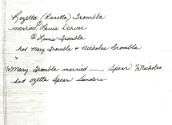 Rozetta (Rosetta) Tromble
married Renie Derver
② Louis Tromble
had Mary Tromble & Nicholas Tromble
Mary Tromble married — Spear
had Zetta Spear Sanders